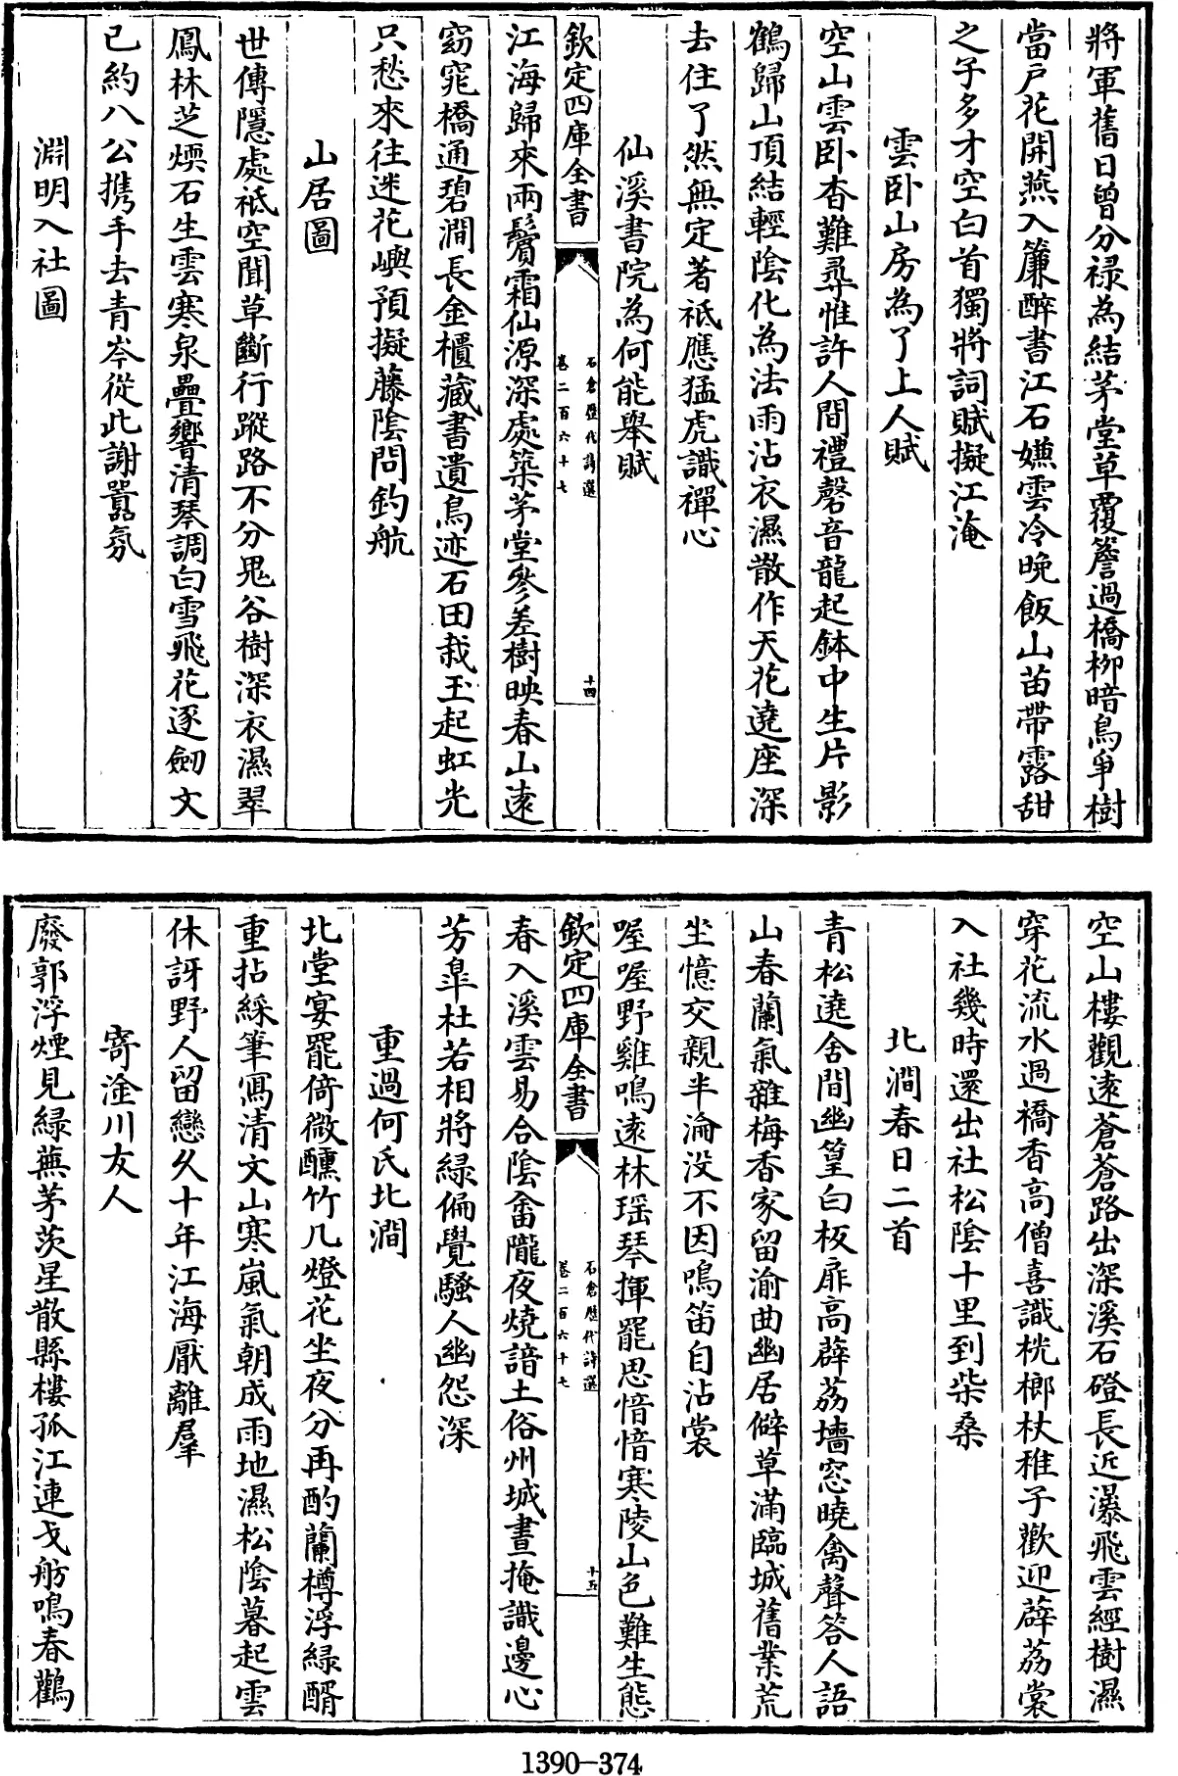 將軍舊日曾分禄為結茅堂草覆簷過橋柳暗鳥爭樹
當戶花開燕入簾醉書江石嫌雲冷晚飯山苗帶露甜
之子多才空白首獨將詞賦擬江淹
雲卧山房為了上人賦
空山雲卧杳難尋惟許人間禮磬音龍起鉢中生片影
鶴歸山頂結輕陰化為法雨沾衣濕散作天花遶座深
去住了然無定著祗應猛虎識禪心
仙溪書院為何能舉賦
欽定四庫全書
石倉歷代詩選
卷二百六十七
十四
江海歸來兩鬢霜仙源深處築茅堂參差樹映春山遠
窈窕橋通碧澗長金櫃藏書遺鳥迹石田栽玉起虹光
只愁來往迷花嶼預擬藤陰問釣航
山居圖
世傳隱處祗空聞草斷行蹤路不分鬼谷樹深衣濕翠
鳳林芝煗石生雲寒泉疊響清琴調白雪飛花逐劒文
已約八公携手去青岑從此謝囂氛
淵明入社圖
空山樓觀遠蒼蒼路出深溪石磴長近瀑飛雲經樹濕
穿花流水過橋香高僧喜識桄榔杖稚子歡迎薜荔裳
入社幾時還出社松陰十里到柴桑
北澗春日二首
青松遶舍間幽篁白板扉高薜荔墻窓曉禽聲答人語
山春蘭氣雜梅香家留渝曲幽居僻草滿臨城舊業荒
坐憶交親半淪没不因鳴笛自沾裳
喔喔野雞鳴遠林瑶琴揮罷思愔愔寒陵山色難生態
欽定四庫全書
石倉歷代詩選
卷二百六十七
十五
春入溪雲易合陰畬隴夜燒諳土俗州城晝掩識邊心
芳臯杜若相將緑偏覺騷人幽怨深
重過何氏北澗
北堂宴罷倚微醺竹几燈花坐夜分再酌蘭樽浮緑醑
重拈綵筆寫清文山寒嵐氣朝成雨地濕松陰暮起雲
休訝野人留戀久十年江海厭離羣
寄淦川友人
廢郭浮煙見緑蕪茅茨星散縣樓孤江連戈舫鳴春鸛
1390-374